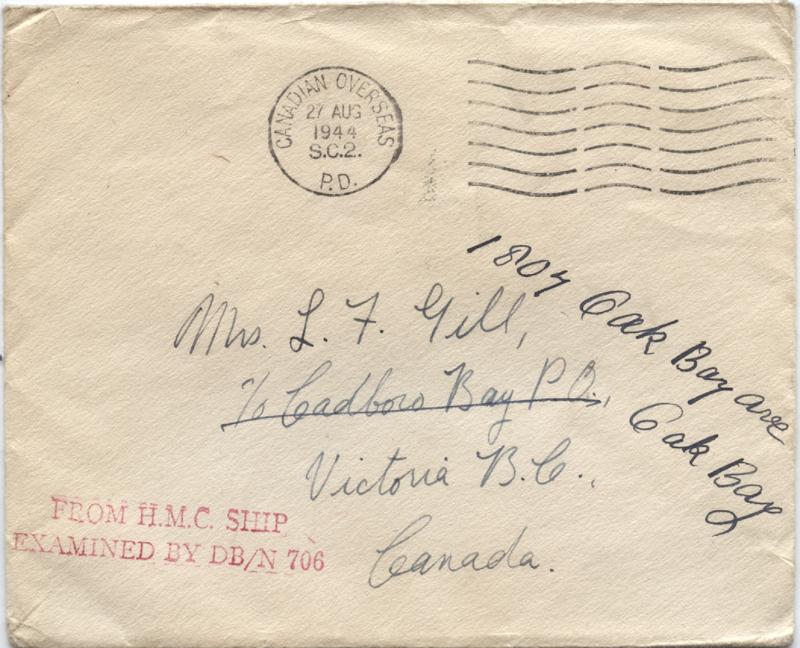 CANADIAN OVERSEAS
27 AUG
1944
S.C.2.
P.D.
Mrs. L. F. Gill,
c/o Cadboro Bay P.O.,
Victoria B.C.,
Canada.
1807 Oak Bay ave
Oak Bay
FROM H.M.C. SHIP
EXAMINED BY DB/N 706